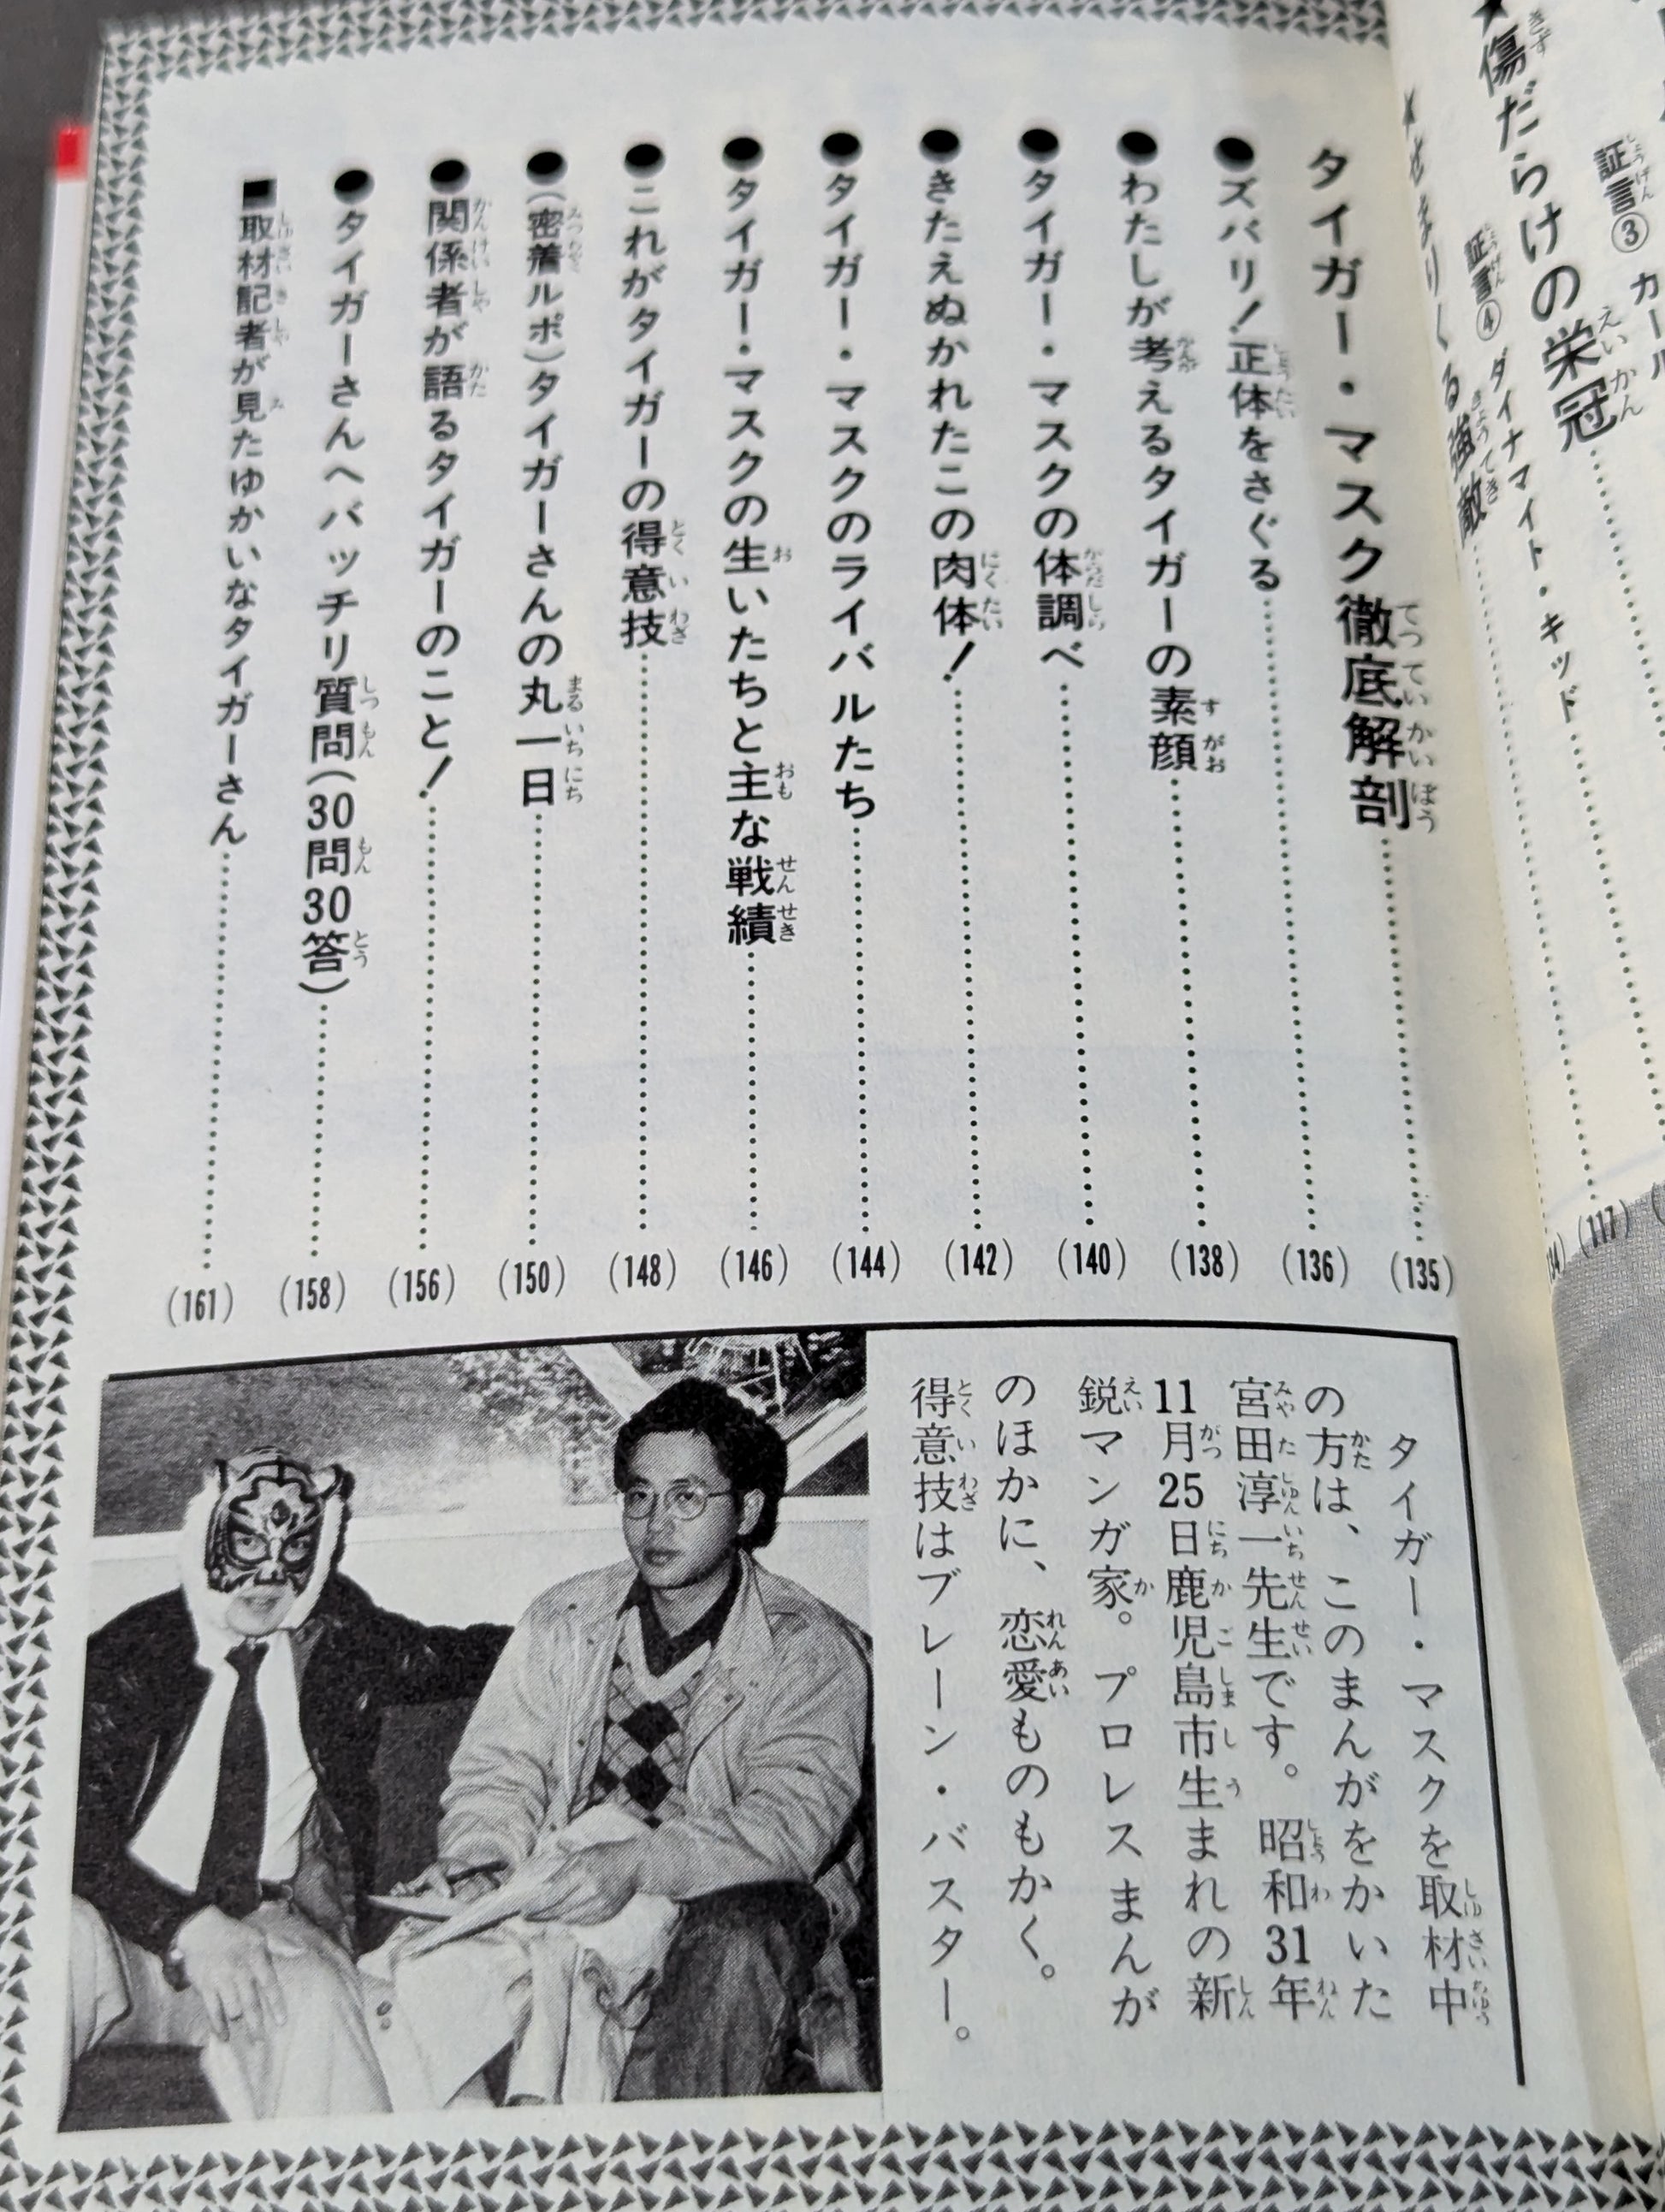 ★傷だらけの栄冠
証言③ カール
証言④ ダイナマイト・キッド
(117)
せまりくる強敵
タイガー・マスク徹底解剖 (135)
●ズバリ!正体をさぐる (136)
●わたしが考えるタイガーの素顔 (138)
●タイガー・マスクの体調べ (140)
●きたえぬかれたこの肉体! (142)
●タイガー・マスクのライバルたち (144)
●タイガー・マスクの生いたちと主な戦績 (146)
●これがタイガーの得意技 (148)
●(密着ルポ)タイガーさんの丸一日 (150)
●関係者が語るタイガーのこと! (156)
●タイガーさんへバッチリ質問(30問30答) (158)
■取材記者が見たゆかいなタイガーさん (161)
タイガー・マスクを取材中
の方は、このまんがをかいた
宮田淳一先生です。昭和31年
11月25日鹿児島市生まれの新
鋭マンガ家。プロレスまんが
のほかに、恋愛ものもかく。
得意技はブレーン・バスター。